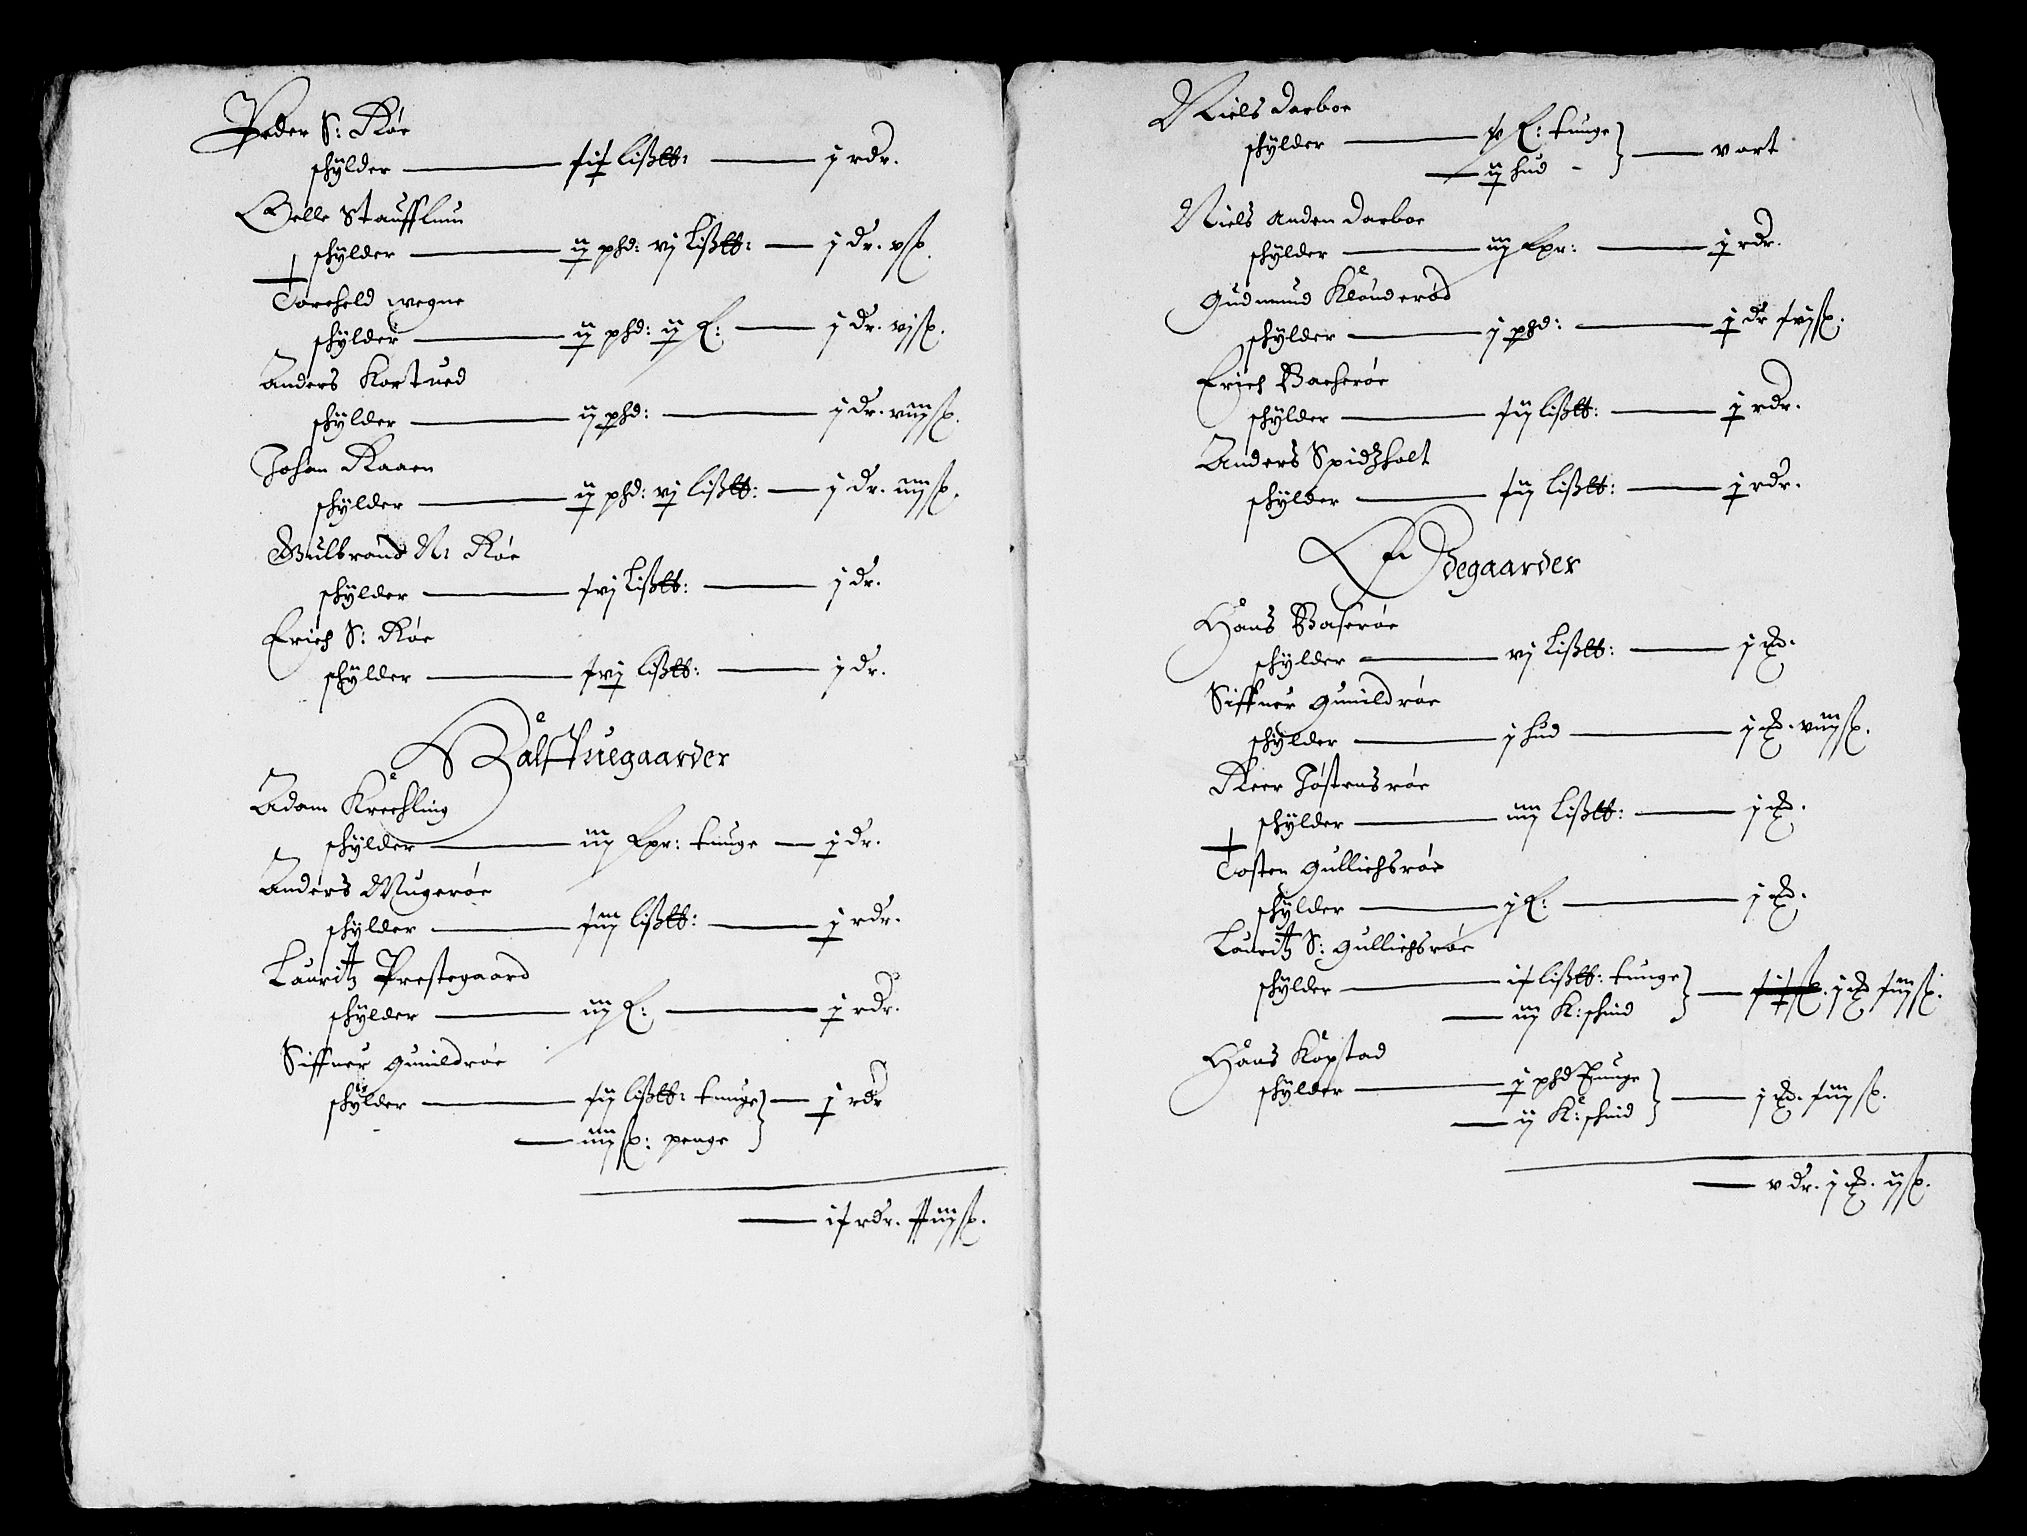 Peder S: Røe
schÿlder — xix lißtt: — j rdr.
Gelle Staufflum
schÿlder — ij phd: vj Lißtt: — j dr. v sk.
Toreheld wegne
schÿlder — ij phd: ij L: — j dr. vj sk.
Anders Kortued
schÿlder — ij phd: — j dr. viij sk.
Johan Raaen
schÿlder — ij phd: vj lißtt: — j dr. iiij sk.
Gulbrand N: Røe
schÿlder — xvj Lißtt: — j dr.
Erich S: Røe
schÿlder — xvj lißtt: — j dr.
Halfſuegaarder
Adam Krechling
schÿlder — iij Lpr: tunge — j dr.
Anders Mugerøe
schÿlder — xiij lißtt: — j rdr.
Lauritz Prestegaard
schÿlder — iij L: — j rdr.
Siffuer Gunildrøe
schÿlder — xij lißtt: tunge — j rdr
— iiij sk: penge
— ix rdr. xxiij sk.
Niels Darboe
schÿlder — L: tunge — v ort
— ij hud
Niels anden Darboe
schÿlder — iij Lpr: — j rdr.
Gudmund Klonderød
schÿlder — j phd: — j dr xvj sk.
Erich Bacherøe
schÿlder — xij lißtt: — j rdr.
Anders Spidzholt
schÿlder — xij lißtt: — j rdr.
Ødegaarder
Hans Basserøe
schÿlder — vj lißtt: — j ort.
Siffuer Gunildrøe
schÿlder — j hud — j ort. viij sk.
Reer Jøstensrøe
schÿlder — iiij Lißtt: — j ort.
Tosten Gulliechsrøe
schÿlder — j L: — j ort.
Lauritz S: Gulliechsrøe
schÿlder — ix lißtt: tunge — j ort xiij sk.
— iij K: schind
Hans Kopstad
schÿlder — j phd tunge — j ort. xiij sk.
— ij K: schind
— v dr. j ort. ij sk.